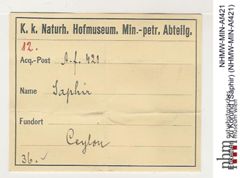 K. k. Naturh. Hofmuseum. Min.-petr. Abteilg.
12.
Acq.-Post A.f. 421
Name Saphir
Fundort
Ceylon
36.-
NHMW-MIN-Af421
(Saphir) (NHMW-MIN-Af421)
nhm